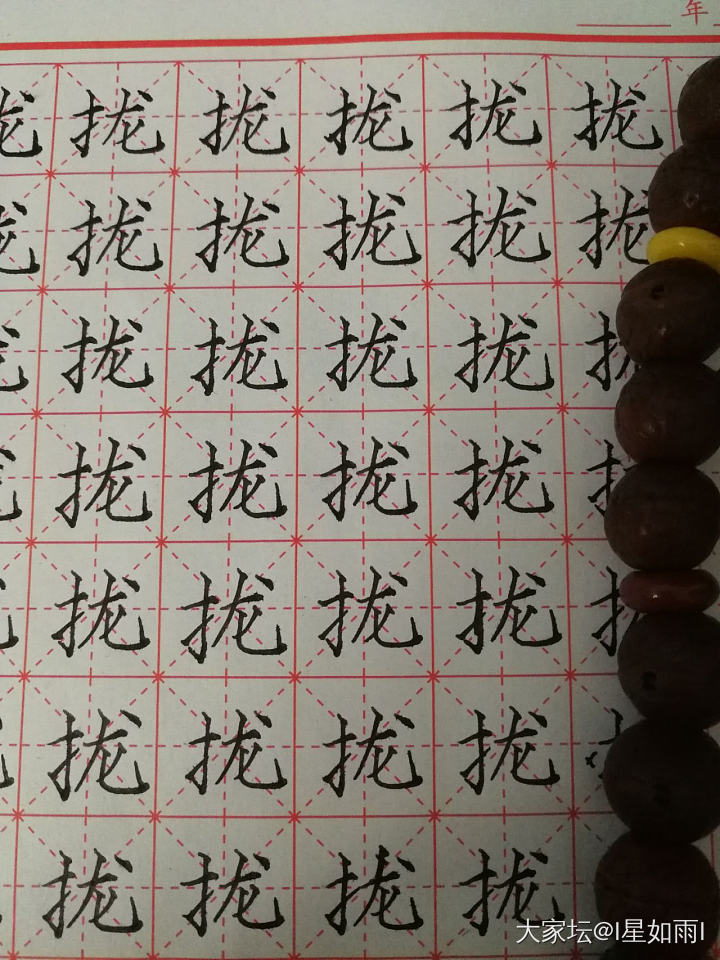 年
拢拢拢拢拢
拢拢拢拢拢
拢拢拢拢
拢拢拢拢
拢拢拢拢
拢拢拢拢
拢拢拢拢
大家坛@I星如雨I